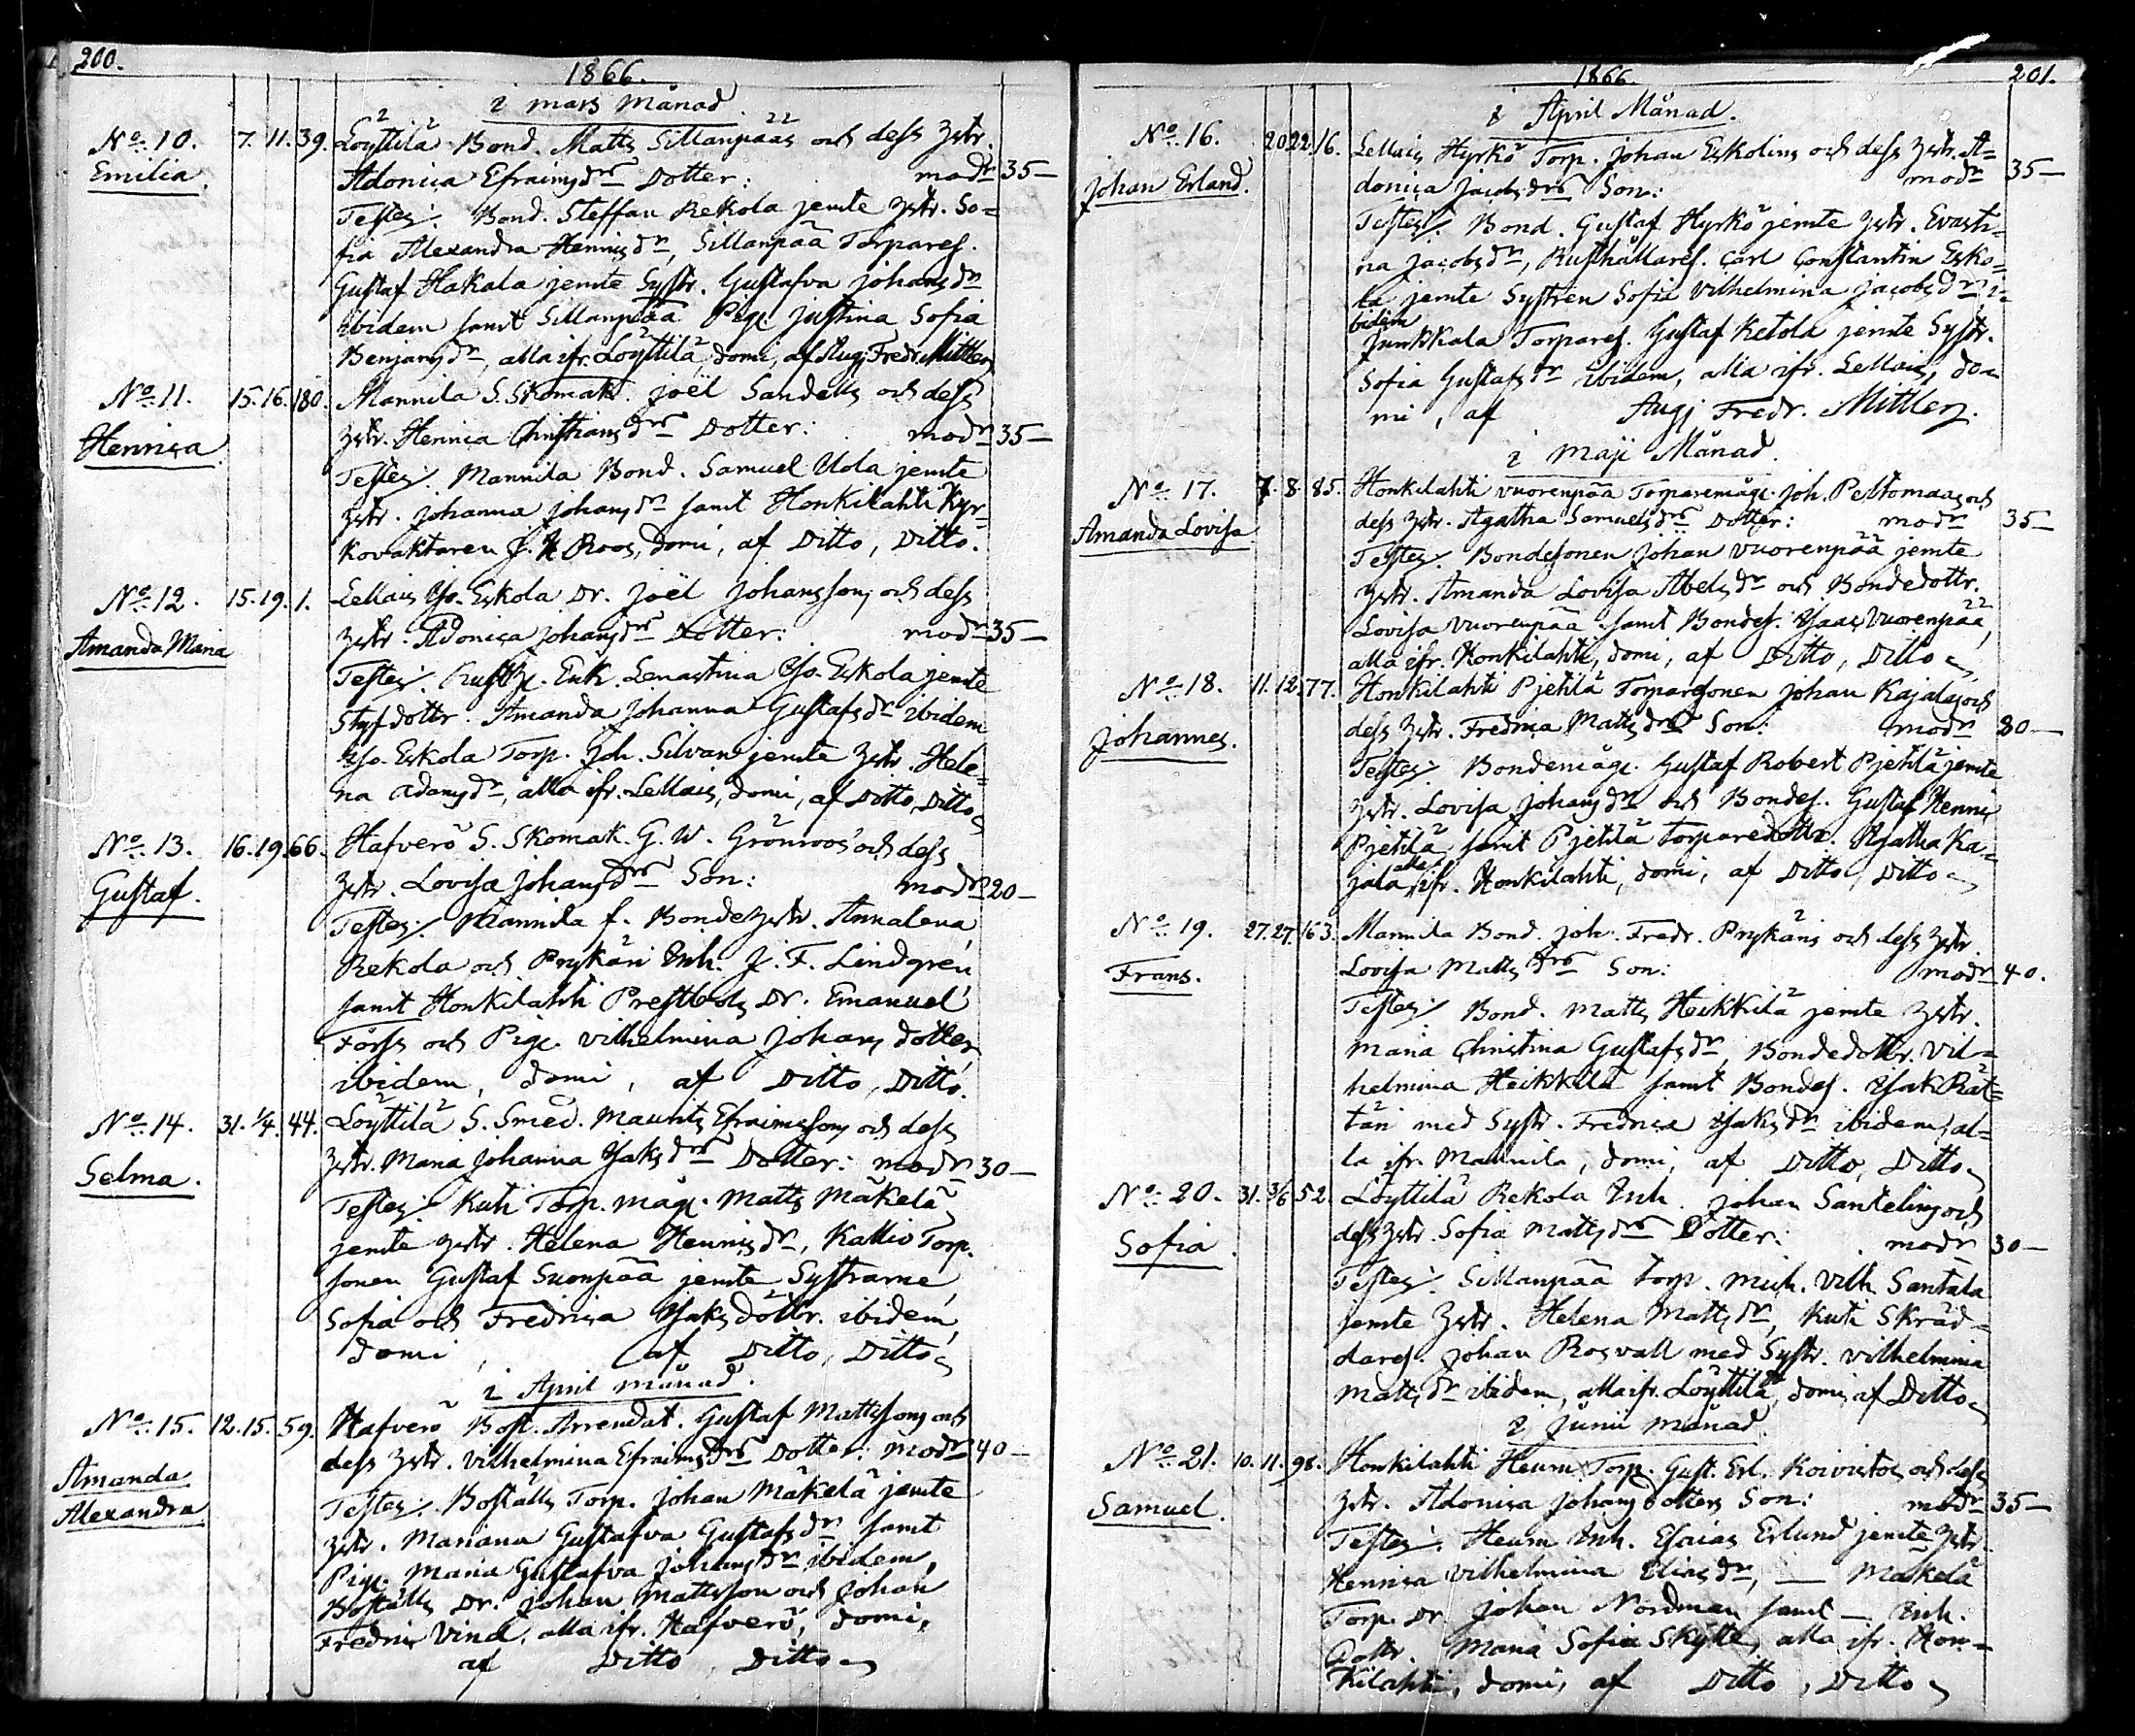 200.
1866.
i mars Månad
No. 10. 7. 11. 39. Löyttilä Bond. Matts Sillanpääs och dess hstr.
Emilia. Adonica Efraimsdrs Dotter: modr 35—
Testes: Bond. Steffan Rekola jemte hstr. So=
fia Alexandra Henricsdr, Sillanpää Torpares.
Gustaf Hakala jemte Systr. Gustafva Johansdr
ibidem samt Sillanpää Pig. Justina Sofia
Benjamsdr, alla ifr. Löyttilä, domi, af Aug: Fredr. Mittler,
No. 11. 15. 16. 180. Mannila S. Skomak. Joël Sandells och dess
Henrica. hstr. Henrica Christiansdrs Dotter: modr 35—
Testes: Mannila Bond. Samuel Uola jemte
hstr. Johanna Johansdr samt Honkilahti Kyr=
kovaktaren J. Roos, domi, af Ditto, Ditto.
No. 12. 15. 19. 1. Lellais Iso-Eskola Dr. Joël Johanssons och dess
Amanda Maria hstr. Adonica Johansdrs Dotter: modr 35—
Testes: Rusth. Enk. Lenastina Iso-Eskola jemte
Styfdottr. Amanda Johanna Gustafsdr ibidem
Iso-Eskola Torp. Joh. Silvan jemte hstr. Hele=
na Adamsdr, alla ifr. Lellais, domi, af Ditto, Ditto
No. 13. 16. 19. 66. Hafverö S. Skomak. G. W. Grönroos och dess
Gustaf. hstr. Lovisa Johansdrs Son: modr 20—
Testes: Mannila f. Bondehstr. Annalena
Rekola och Prykäri Inh. J. F. Lindgren
samt Honkilahti Prestbols Dr. Emanuel
Forss och Pig. Vilhelmina Johans dotter
ibidem, domi, af Ditto, Ditto.
No. 14. 31. 1/4. 44. Löyttilä S. Smed. Maurits Efraimssons och dess
Selma. hstr. Maria Johanna Isaksdrs Dotter: modr 30—
Testes: Kuti Torp. måg. Matts Mäkelä
jemte hstr. Helena Henricsdr, Kallio Torp.
sonen Gustaf Suonpää jemte Systrarne
Sofia och Fredrica Isaksdöttr. ibidem,
domi, af Ditto, Ditto
i April månad.
No. 15. 12. 15. 59. Hafverö Bost. Arrendat. Gustaf Mattssons och
Amanda dess hstr. Vilhelmina Efraimsdrs Dotter: modr 40—
Alexandra Testes: Boställs Torp. Johan Mäkelä jemte
hstr. Mariana Gustafva Gustafsdr samt
Pig. Maria Gustafva Johansdr ibidem,
Boställs Dr. Johan Mattsson och Johan
Fredric Vind, alla ifr. Hafverö, domi,
af Ditto, Ditto
1866. 201.
i April Månad.
No. 16. 20 22. 16. Lellais Hyrkö Torp. Johan Eskolins och dess hstr. A=
Johan Erland. donica Jacobsdrs Son: modr 35—
Testes: Bond. Gustaf Hyrkö jemte hstr. Evasti=
na Jacobsdr, Rusthållares. Carl Constantin Esko=
la jemte Systren Sofia Vilhelmina Jacobsdr i=
bidem
Junkkala Torpares. Gustaf Ketola jemte Systr.
Sofia Gustafsdr ibidem, alla ifr. Lellais, do=
mi, af Aug: Fredr. Mittler.
i Maji Månad.
No. 17. 7. 8. 85. Honkilahti Vuorenpää Torparemåg. Joh. Peltomaas och
Amanda Lovisa dess hstr. Agatha Samuelsdrs Dotter: modr 35—
Testes: Bondesonen Johan Vuorenpää jemte
hstr. Amanda Lovisa Abelsdr och Bondedottr.
Lovisa Vuorenpää samt Bondes. Isaac Vuorenpää,
alla ifr. Honkilahti, domi, af Ditto, Ditto
No. 18. 11. 12. 77. Honkilahti Pjetilä Torparesonen Johan Kajalas och
Johannes. dess hstr. Fredrica Mattsdrs Son: modr 30—
Testes: Bondemåg. Gustaf Robert Pjetilä jemte
hstr. Lovisa Johansdr och Bondes. Gustaf Henric
Pjetilä samt Pjetilä Torparedottr. Agatha Ka=
jala alla ifr. Honkilahti, domi, af Ditto, Ditto
No. 19. 27. 27. 163. Mannila Bond. Joh. Fredr. Prykäris och dess hstr.
Frans. Lovisa Mattsdrs Son: modr 40.
Testes: Bond. Matts Heikkilä jemte hstr.
Maria Christina Gustafsdr, Bondedottr. Vil=
helmina Heikkilä samt Bondes. Isak Rät=
täri med Systr. Fredrica Isaksdr ibidem, al=
la ifr. Mannila, domi, af Ditto, Ditto
No. 20. 31. 3/6 52. Löyttilä Rekola Inh. Johan Santelins och
Sofia. dess hstr. Sofia Mattsdrs Dotter: modr 30—
Testes: Sillanpää Torp. Mich. Vilh. Santala
jemte hstr. Helena Mattsdr, Kuti Skräd=
dares. Johan Rosvall med Systr. Vilhelmina
Mattsdr ibidem, alla ifr. Löyttilä, domi, af Ditto
i Junii månad.
No. 21. 10. 11. 98. Honkilahti Heurn Torp. Gust. Erl. Koivistos och dess
Samuel. hstr. Adonica Johansdotters Son: modr 35—
Testes: Heurn Inh. Esaias Erlund jemte hstr.
Henrica Vilhelmina Eliasdr, — Mäkelä
Torp. Dr. Johan Nordman samt — Inh.
Dottr. Maria Sofia Skytte, alla ifr. Hon=
kilahti, domi, af Ditto, Ditto